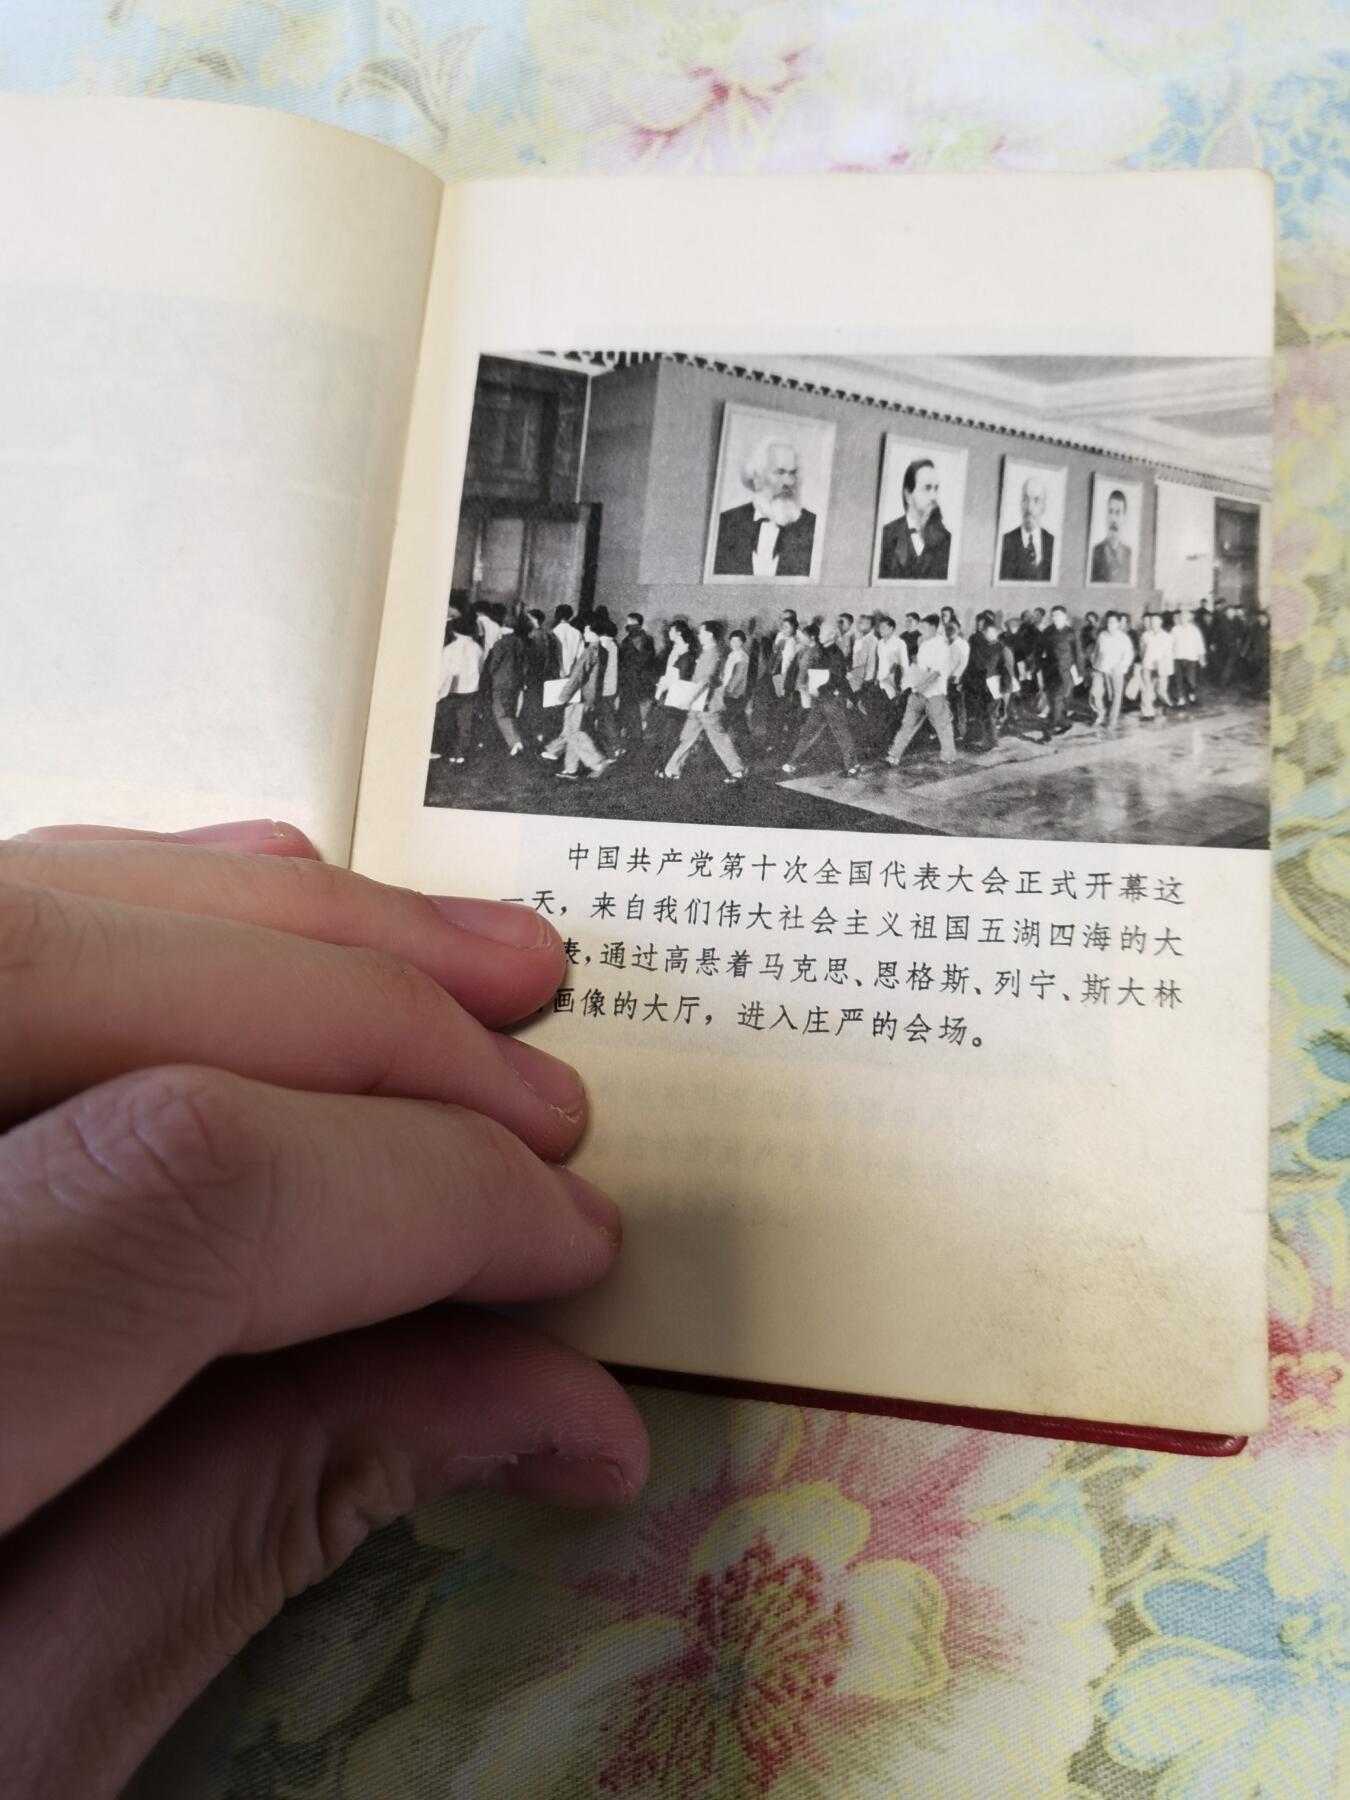 中国共产党第十次全国代表大会正式开幕这
一天，来自我们伟大社会主义祖国五湖四海的大
表，通过高悬着马克思、恩格斯、列宁、斯大林
画像的大厅，进入庄严的会场。